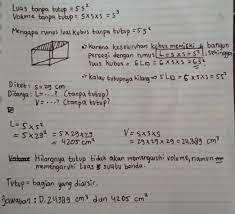 Luas tanpa tutup = 5S²
Volume tanpa tutup = S×S×S = S³
Mengapa rumus luas kubus tanpa tutup = 5S²
• Karena keseluruhan kubus memiliki 6 bangun
persegi dengan rumus L = S×S = S²,
luas kubus = 6L□ = 6×S×S = 6S²
• kalau tutupnya hilang ⇒ 5L□ = 5×S×S = 5S²
Diket : S = 29 cm
Ditanya : L = ...? (tanpa tutup)
V = ...? (tanpa tutup)
L = 5×S²
= 5×29² = 5×29×29
= 4205 cm²
V = S×S×S
= 29×29×29 = 24.389 cm³
Hilangnya tutup tidak akan memengaruhi volume, namun
memengaruhi luas suatu benda.
Tutup = bagian yang diarsir.
Jawaban : D. 24389 cm³ dan 4205 cm²